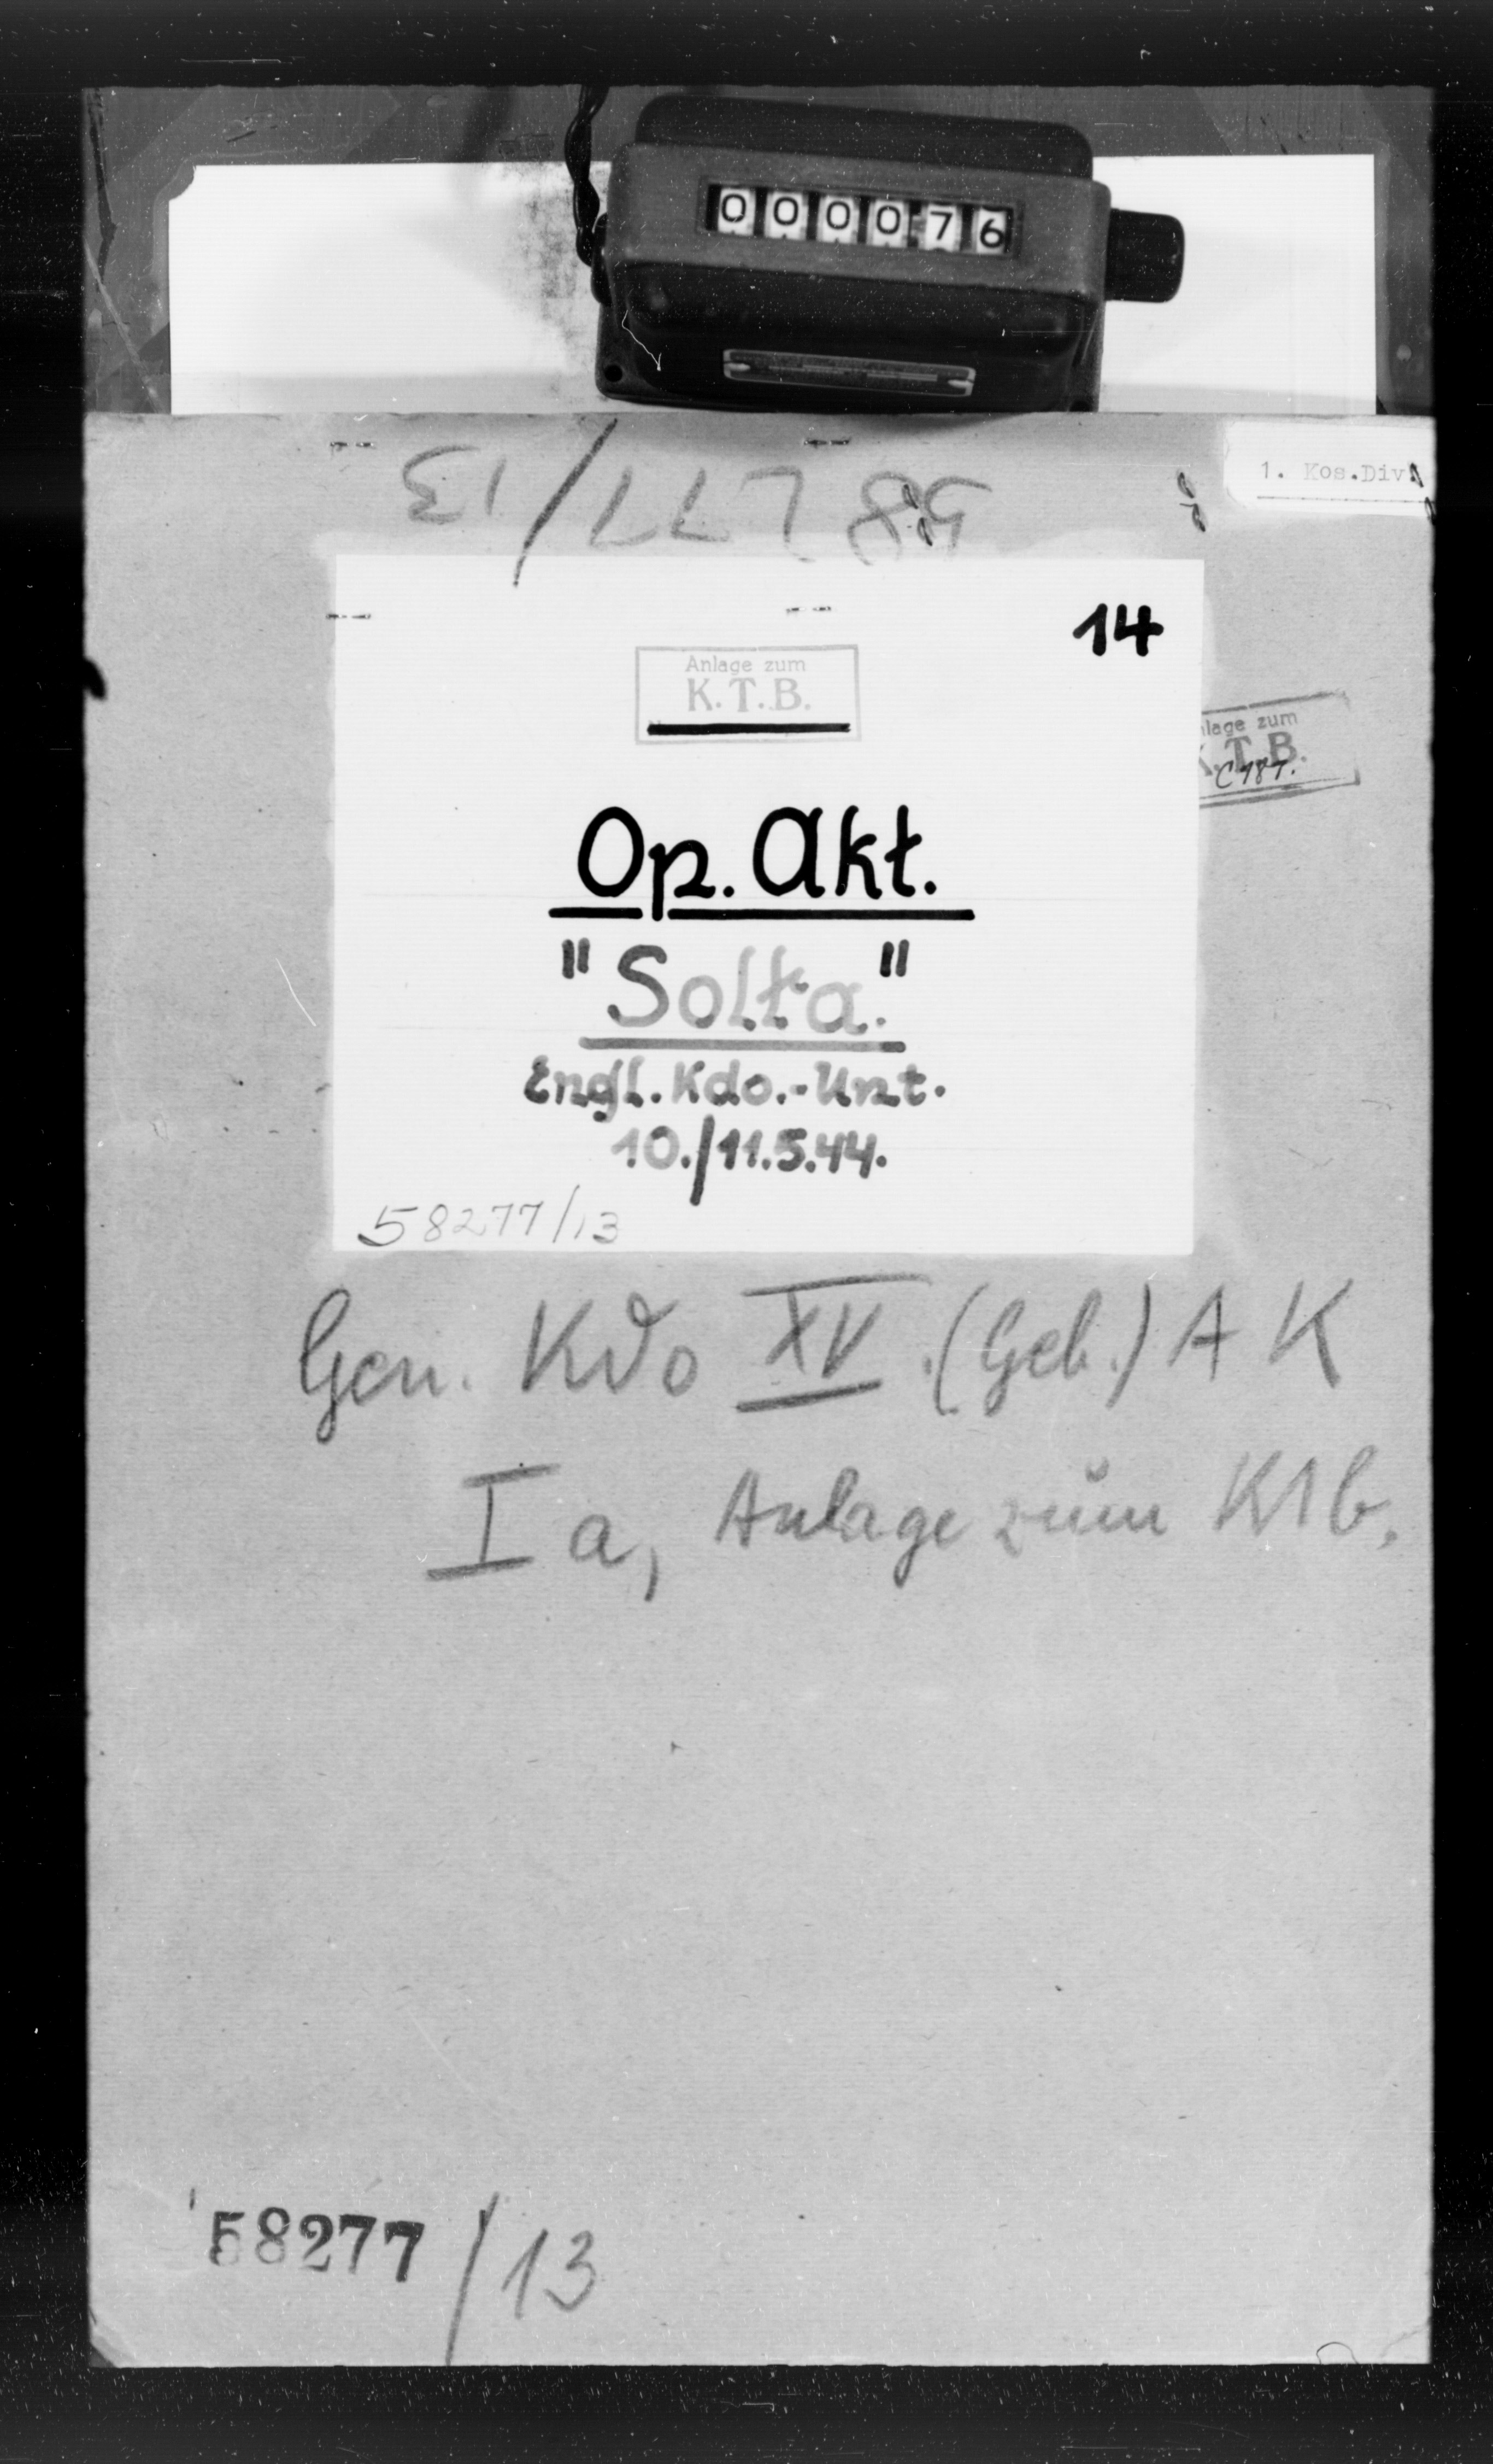 000076
58277/13
1. Kos.Div.
14
Anlage zum
K.T.B.
lage zum
K.T.B.
Op. Akt.
"Solta."
Engl. Kdo.-Unt.
10./11.5.44.
58277/13
Gen. Kdo XV. (Geb.) A K
I a, Anlage zum Ktb.
58277/13